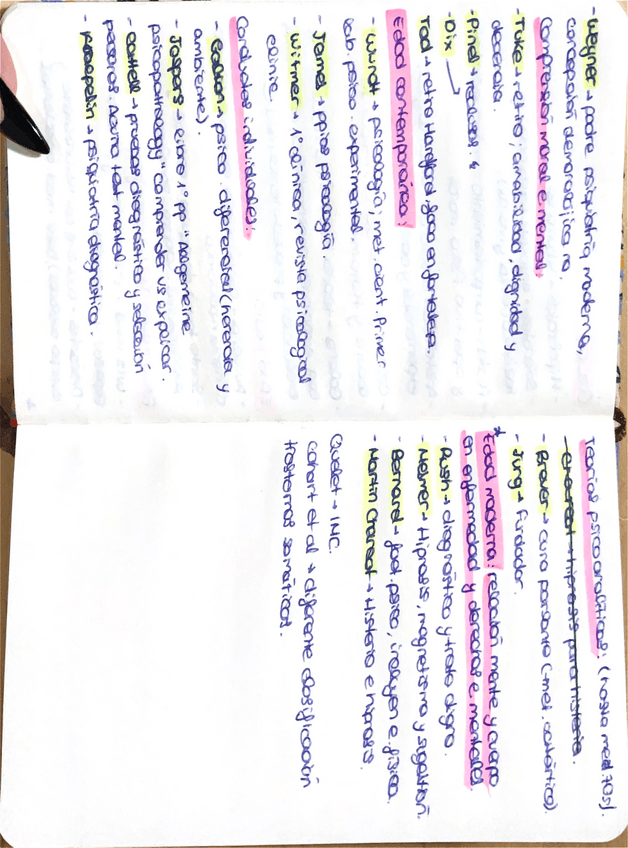 - Weyner → padre psiquiatría moderna,
concepción demonológica no.
Comprensión moral e. mental:
- Tuke → retiro; amabilidad, dignidad y
decencia.
- Pinel → reclusos.
- Dix
Tod → retiro Hartford. foco en fortaleza.
Edad contemporánea:
- Wundt → psicología; met. cient. Primer
lab. psico. experimental.
- James → ppios psicología.
- Witmer → 1º clínica, revista psicological
clinic.
Conductas individuales:
- Galton → psico. diferencial (herencia y
ambiente).
- Jaspers → libro 1º pp "Allgemeine
psicopathology" comprender vs explicar.
- Cattell → pruebas diagnóstico y selección
personas. Acuña test mental.
- Kraepelin → psiquiatría diagnóstica.
Teorías psicoanalíticas: (hasta med. 70s).
- Charcot → hipnosis para histeria.
- Breuer → cura parlante (-met. catártico).
- Jung → fundador.
* Edad moderna: relación mente y cuerpo
en enfermedad y derechos e. mentales.
- Rush → diagnóstico y trato digno.
- Mesmer → Hipnosis, magnetismo y sugestión.
- Bernard → fact. psico, influyen e. física.
- Martin Charcot → Histeria e hipnosis.
Quelet → IMC.
Cohart et al → diferente clasificación
trastornos somáticos.